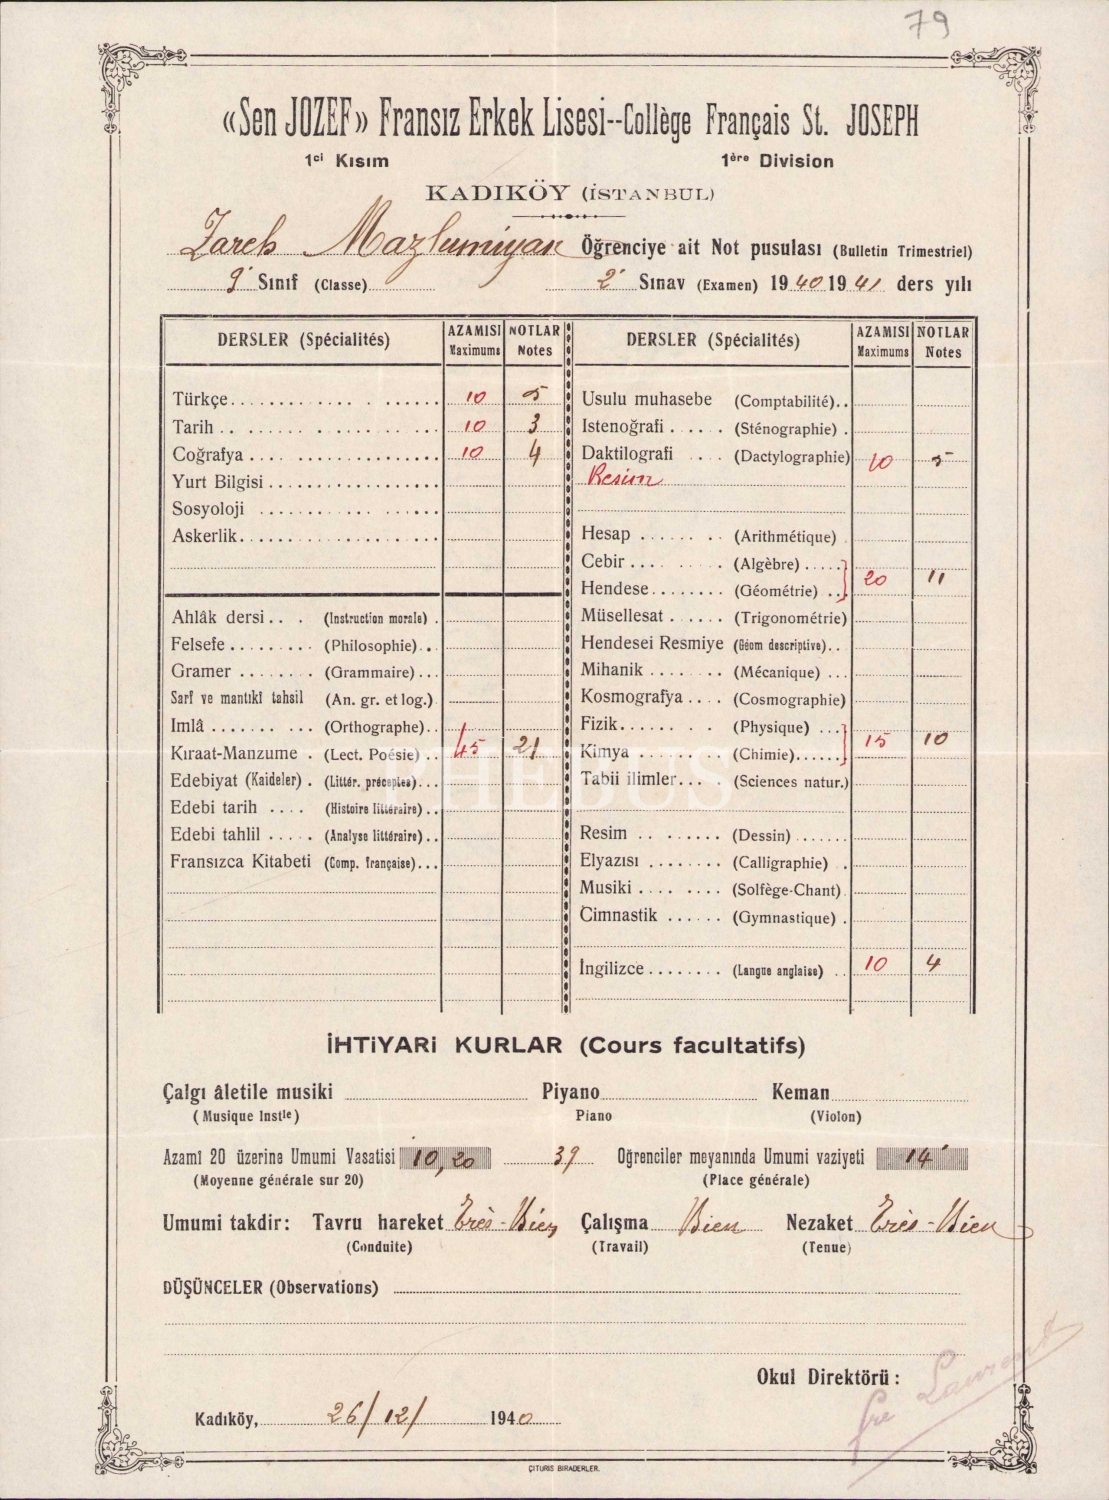 79
«Sen JOZEF» Fransız Erkek Lisesi--Collège Français St. JOSEPH
1ci Kısım 1ère Division
KADIKÖY (İSTANBUL)
Zareh Mazlumiyan Öğrenciye ait Not pusulası (Bulletin Trimestriel)
9' Sınıf (Classe) 2' Sınav (Examen) 1940 1941 ders yılı
DERSLER (Spécialités) AZAMISI Maximums NOTLAR Notes
Türkçe 10 5
Tarih 10 3
Coğrafya 10 4
Yurt Bilgisi
Sosyoloji
Askerlik
Ahlâk dersi (Instruction morale)
Felsefe (Philosophie)
Gramer (Grammaire)
Sarf ve mantıkî tahsil (An. gr. et log.)
Imlâ (Orthographe)
Kıraat-Manzume (Lect. Poésie) 45 21
Edebiyat (Kaideler) (Littér. préceptes)
Edebi tarih (Histoire littéraire)
Edebi tahlil (Analyse littéraire)
Fransızca Kitabeti (Comp. française)
DERSLER (Spécialités) AZAMISI Maximums NOTLAR Notes
Usulu muhasebe (Comptabilité)
Istenoğrafi (Sténographie)
Daktilografi (Dactylographie) 10 5
Resim
Hesap (Arithmétique)
Cebir (Algèbre)
20 11
Hendese (Géométrie)
Müsellesat (Trigonométrie)
Hendesei Resmiye (Géom descriptive)
Mihanik (Mécanique)
Kosmografya (Cosmographie)
Fizik (Physique)
15 10
Kimya (Chimie)
Tabii ilimler (Sciences natur.)
Resim (Dessin)
Elyazısı (Calligraphie)
Musiki (Solfège-Chant)
Cimnastik (Gymnastique)
İngilizce (Langue anglaise) 10 4
PHEBUS
İHTİYARİ KURLAR (Cours facultatifs)
Çalgı âletile musiki Piyano Keman
(Musique Instle) Piano (Violon)
Azamî 20 üzerine Umumi Vasatisi 10,20 39 Oğrenciler meyanında Umumi vaziyeti 14'
(Moyenne générale sur 20) (Place générale)
Umumi takdir: Tavru hareket Très-Bien Çalışma Bien Nezaket Très-Bien
(Conduite) (Travail) (Tenue)
DÜŞÜNCELER (Observations)
Okul Direktörü :
fre Laurent
Kadıköy, 26/12/ 1940
ÇITURIS BIRADERLER.